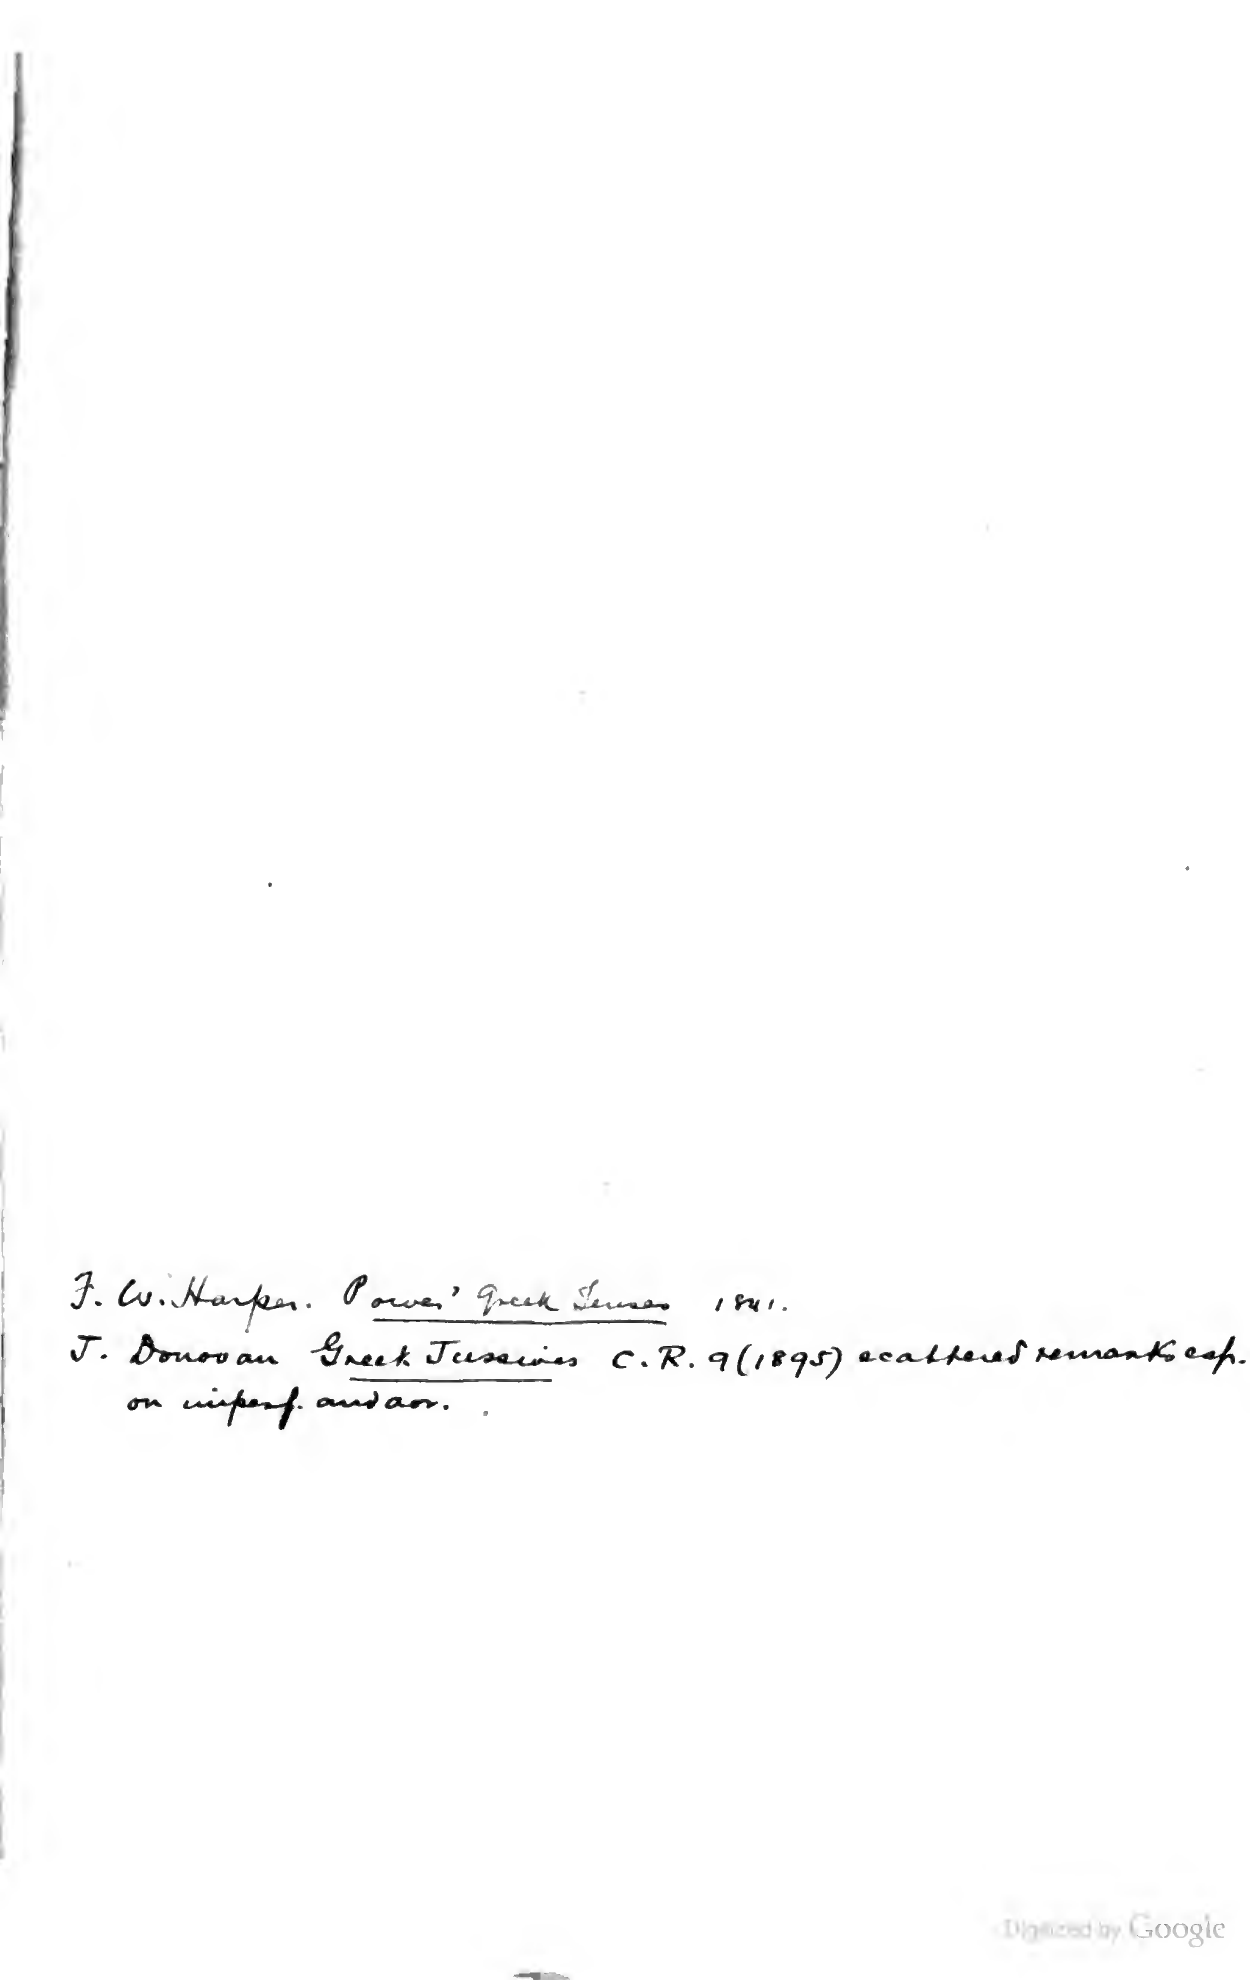 F. W. Harper. Power' Greek Tenses 1841.
J. Donovan Greek Jussives C.R. 9 (1895) scattered remarks esp.
on imperf. and aor.
Digitized by Google